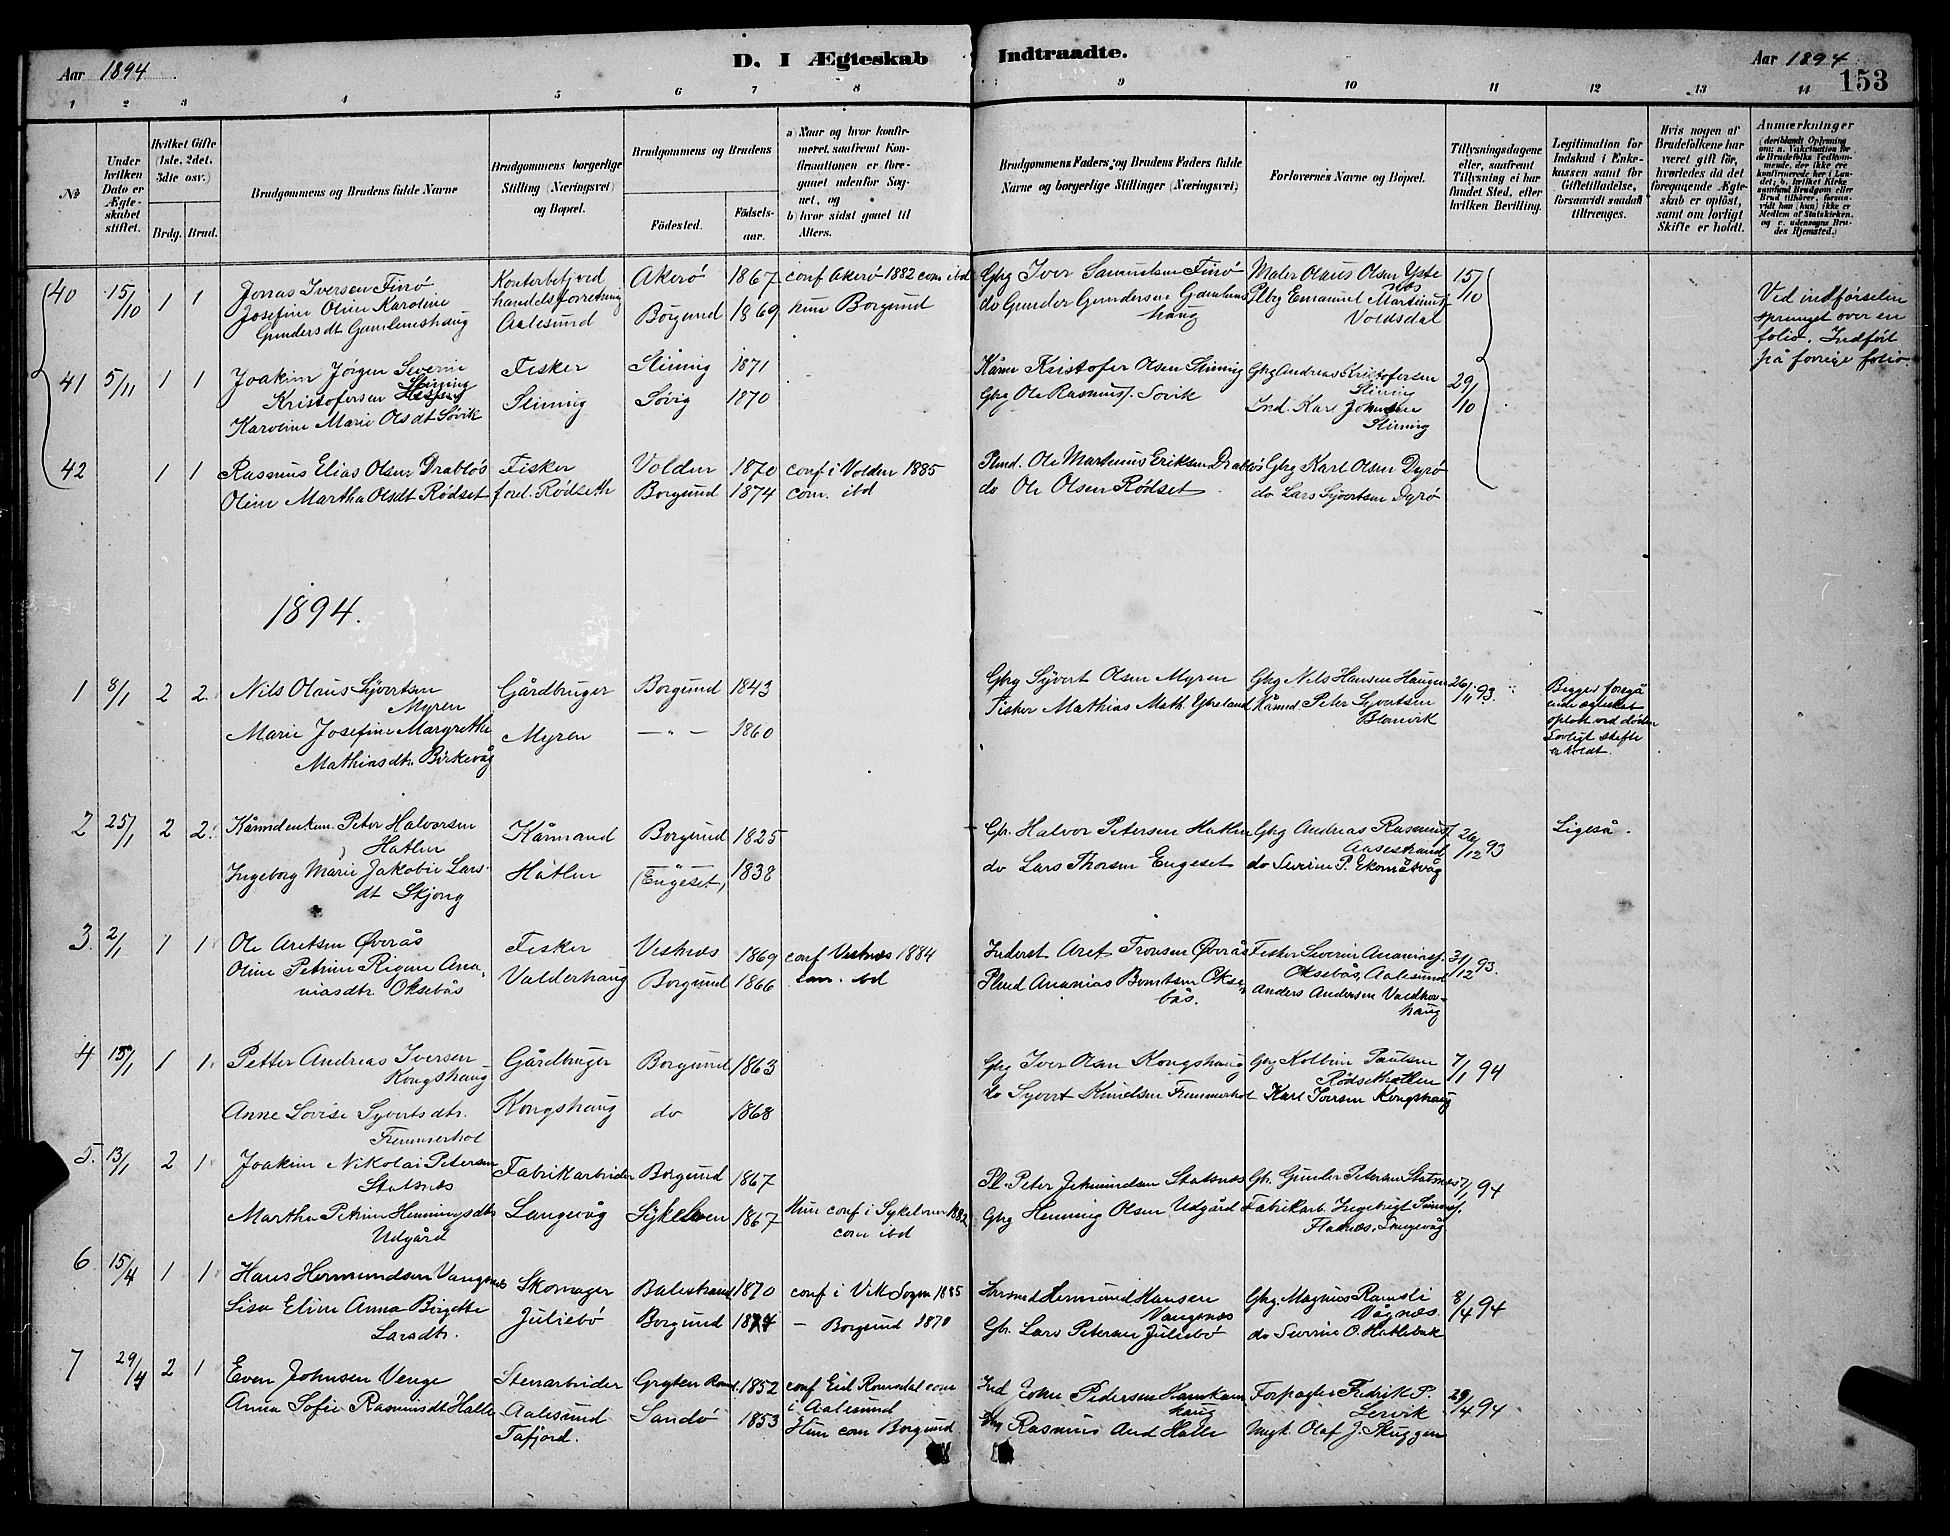 Aar 1894
D. I Ægteskab Indtraadte.
Aar 1894
153
1 2 3 4 5 6 7 8 9 10 11 12 13 14
№
Under hvilken Dato er Ægteskabet stiftet.
Hvilket Gifte (1ste, 2det, 3die osv.)
Brdg. Brud.
Brudgommens og Brudens fulde Navne
Brudgommens borgerlige Stilling (Næringsvei) og Bopæl.
Brudgommens og Brudens
Fødested. Fødselsaar.
a) Naar og hvor konfirmeret, saafremt Konfirmationen er foregaaet udenfor Sognet, og
b) hvor sidst gaaet til Alters.
Brudgommens Faders og Brudens Faders fulde Navne og borgerlige Stillinger (Næringsvei)
Forlovernes Navne og Bopæl.
Tillysningsdagene eller, saafremt Tillysning ei har fundet Sted, efter hvilken Bevilling.
Legitimation for Indskud i Enkekassen samt for Giftetilladelse, forsaavidt saadan tiltrænges.
Hvis nogen af Brudefolkene har været gift før, hvorledes da det foregaaende Ægteskab er opløst, samt om lovligt Skifte er holdt.
Anmærkninger (deriblandt Oplysning om: a. Vaksination for de Brudefolks Vedkommende, der ikke ere konfirmerede her i Landet; b. hvilket Kirkesamfund Brudgom eller Brud tilhører, forsaavidt han (hun) ikke er Medlem af Statskirken, og c. udensogns Brudes Hjemsted.)
40 15/10 1 1 Jonas Iversen Finö Kontorbetjend Akerö 1867 conf Akerö 1882 com ibd Gbrg Iver Samuelsen Finö Maler Olaus Olsen Ystenes 15/10
Josefine Oline Karoline handelsforretning Borgund 1869 hun Borgund do Gunder Gundersen Gamlemshaug Plbrg Emanuel Martinusf. Voldsdal
Gundersdt Gamlemshaug Aalesund
Ved indförselen
sprunget over en
folio. Indfört
på forrige folio.
41 5/11 1 1 Joakim Jörgen Severin Fisker Slinning 1871 Kårm Kristofer Olsen Slinning Gbrg Andreas Kristofersen Slinning 29/10
Kristofersen Slinning
Karoline Marie Olsdt Sövik Slinning Søvig 1870 Gbrg Ole Rasmusf. Sovik Ind. Karl Johnsen Slinning
42 1 1 Rasmus Elias Olsen Drablös Fisker Volden 1870 conf i Volden 1885 Plmd. Ole Martinus Eriksen Drablös Gbrg Karl Olsen Dyrö
Oline Martha Olsdt Rödset forel. Rödseth Borgund 1874 com. ibd do Ole Olsen Rödset do Lars Sjvertsen Dyrö
1894.
1 8/1 2 2. Nils Olaus Sjvertsen Myren Gårdbruger Borgund 1843 Gbrg Syvert Olsen Myren Gbrg Nils Hansen Haugen 26/11 93.
Marie Josefine Margrethe Myren —„— 1860 Fisker Mathias Math. Ytreland Kårmd Peter Syvertsen Blomvik
Mathiasdtr. Birkevåg
Begges foregå
ende ægteskab
oplöst ved döden
Lovligt skifte
er holdt.
2 25/1 2 2. Kårmdenkem. Peter Halvorsen Hatlen Kårmand Borgund 1825 Gbr. Halvor Petersen Hatlen Gbrg Andreas Rasmusf. Aasestrand 26/12 93 Ligeså.
Ingeborg Marie Jakobie Larsdt Skjong Hatlen (Engeset) 1838 do Lars Thorsen Engeset do Severin P. Ekornåsvåg
3. 2/1 1 1 Ole Aretsen Överås Fisker Vestnæs 1869 conf Vestnæs 1884 Inderst Aret Tronsen Överås Fisker Severin Ananiasf. 31/12 93.
Oline Petrine Rigmor Ananiasdtr Oksebås Valderhaug Borgund 1866 com. ibd Plmd Ananias Berntsen Oksebås. Oksebås, Aalesund
Anders Andersen Valderhaug
4 15/1 1 1. Petter Andreas Iversen Kongshaug Gårdbruger Borgund 1863 Gbrg Iver Olsen Kongshaug Gbrg Kolbein Paulsen Rödsethatlen 7/1 94
Anne Lovise Syvertsdtr. Fremmerhol Kongshaug do 1868 do Syvert Knudsen Fremmerhol Karl Iversen Kongshaug
5. 13/1 2 1. Joakim Nikolai Petersen Stalsnæs Fabrikarbeider Borgund 1867 Pl. Peter Jetmundsen Stalsnæs Gbr. Gunder Petersen Stalsnæs 7/1 94
Martha Petrine Henningsdtr Udgård Langevåg Sykelven 1867 Hun conf i Sykelven 1882 com ibd Gbrg Henning Olsen Udgård Fabrikarb. Ingebrigt Simonsf. Flatnæs, Langevåg
6. 15/4 1 1. Hans Hermundsen Vangsnes Skomager Balestrand 1870 conf i Vik Sogn 1885 Hermund Hansen Vangsnæs Gbrg. Magnus Ramsli Vågnæs. 8/4 94
Lisa Eline Anna Birgitte Larsdtr. Juliebö Borgund 1874 — Borgund Gbr. Lars Petersen Juliebö do Severin O. Hatlebak
7 29/4 2 1 Even Johnsen Venge Stenarbeider Grytten Romsd. 1852 conf Eid Romsdal com i Aalesund Ind John Pedersen Forpagter Fredrik P. Lervik 29/4 94
Anna Sofie Rasmusdt Halle Aalesund Sandö 1853 Hun com Borgund. Gbrg Rasmus And Halle Ungk. Olaf J. Skuggen
Tafjord.